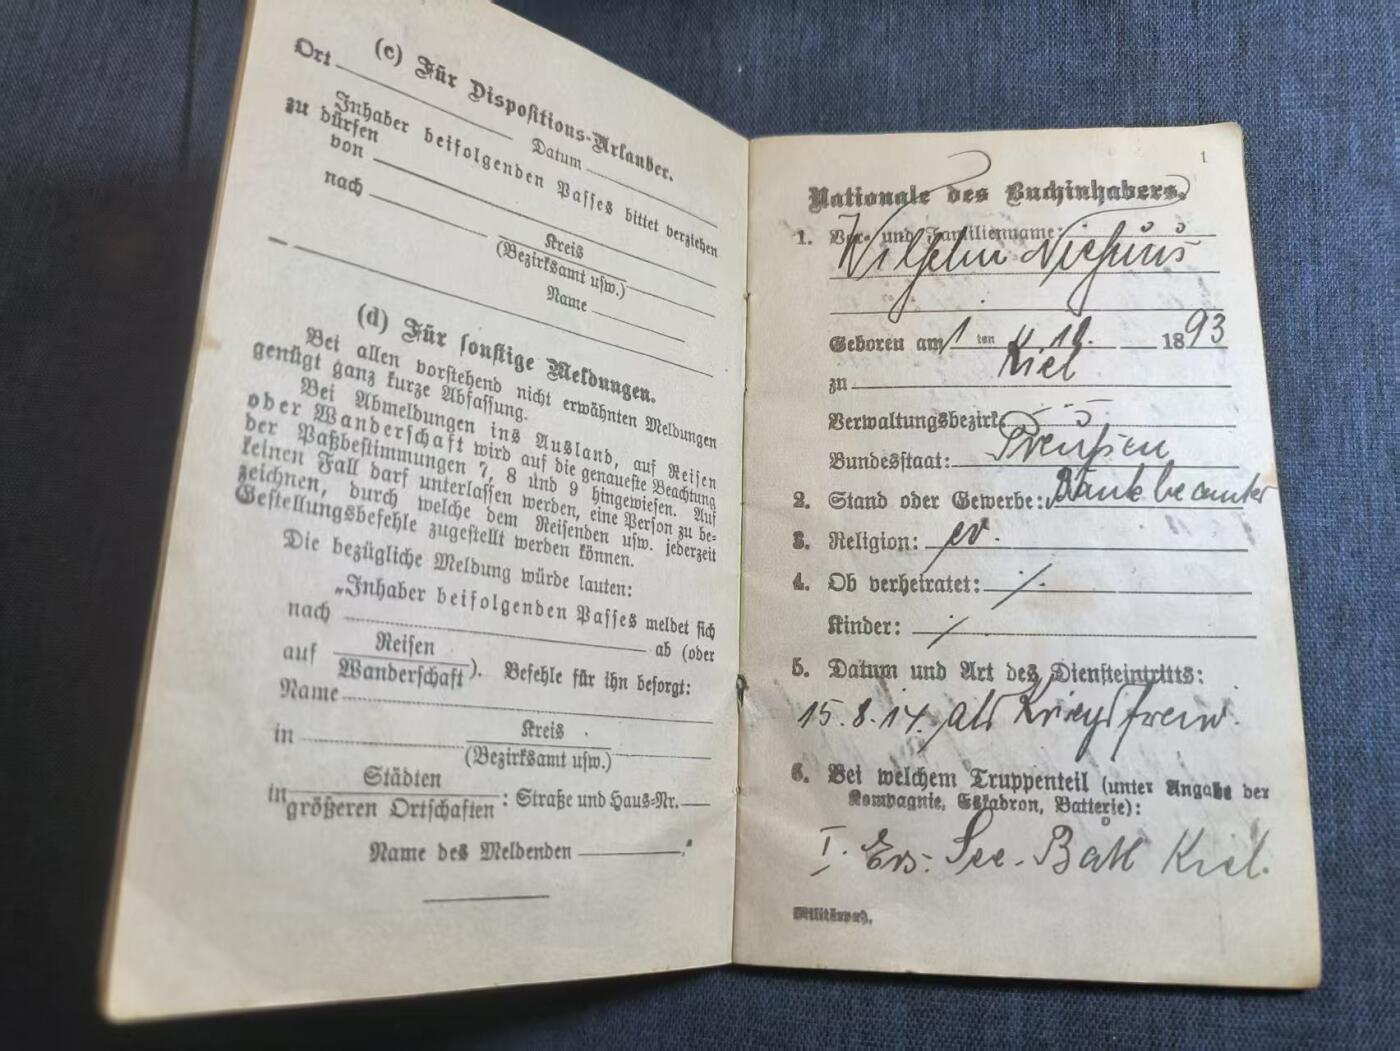 (c) Für Dispositions-Urlauber.
Ort Datum
Inhaber beifolgenden Passes bittet verziehen
zu dürfen
von
nach
Kreis
(Bezirksamt usw.)
Name
(d) Für sonstige Meldungen.
Bei allen vorstehend nicht erwähnten Meldungen
genügt ganz kurze Abfassung.
Bei Abmeldungen ins Ausland, auf Reisen
oder Wanderschaft wird auf die genaueste Beachtung
der Paßbestimmungen 7, 8 und 9 hingewiesen. Auf
keinen Fall darf unterlassen werden, eine Person zu be-
zeichnen, durch welche dem Reisenden usw. jederzeit
Gestellungsbefehle zugestellt werden können.
Die bezügliche Meldung würde lauten:
„Inhaber beifolgenden Passes meldet sich
nach ab (oder
auf Reisen
Wanderschaft). Befehle für ihn besorgt:
Name
in Kreis
(Bezirksamt usw.)
in Städten
größeren Ortschaften: Straße und Haus-Nr.
Name des Meldenden
1
Nationale des Buchinhabers.
1. Vor- und Familienname:
Wilhelm Niehuus
Geboren am 1 ten 1893
zu Kiel
Verwaltungsbezirk:
Bundesstaat: Preußen
2. Stand oder Gewerbe: Bankbeamter
3. Religion: ev.
4. Ob verheiratet: ./.
Kinder: /
5. Datum und Art des Diensteintritts:
15.8.14. als Kriegsfreiw.
6. Bei welchem Truppenteil (unter Angabe der
Kompagnie, Eskadron, Batterie):
I. Ers. See-Batl Kiel.
Militärpaß.